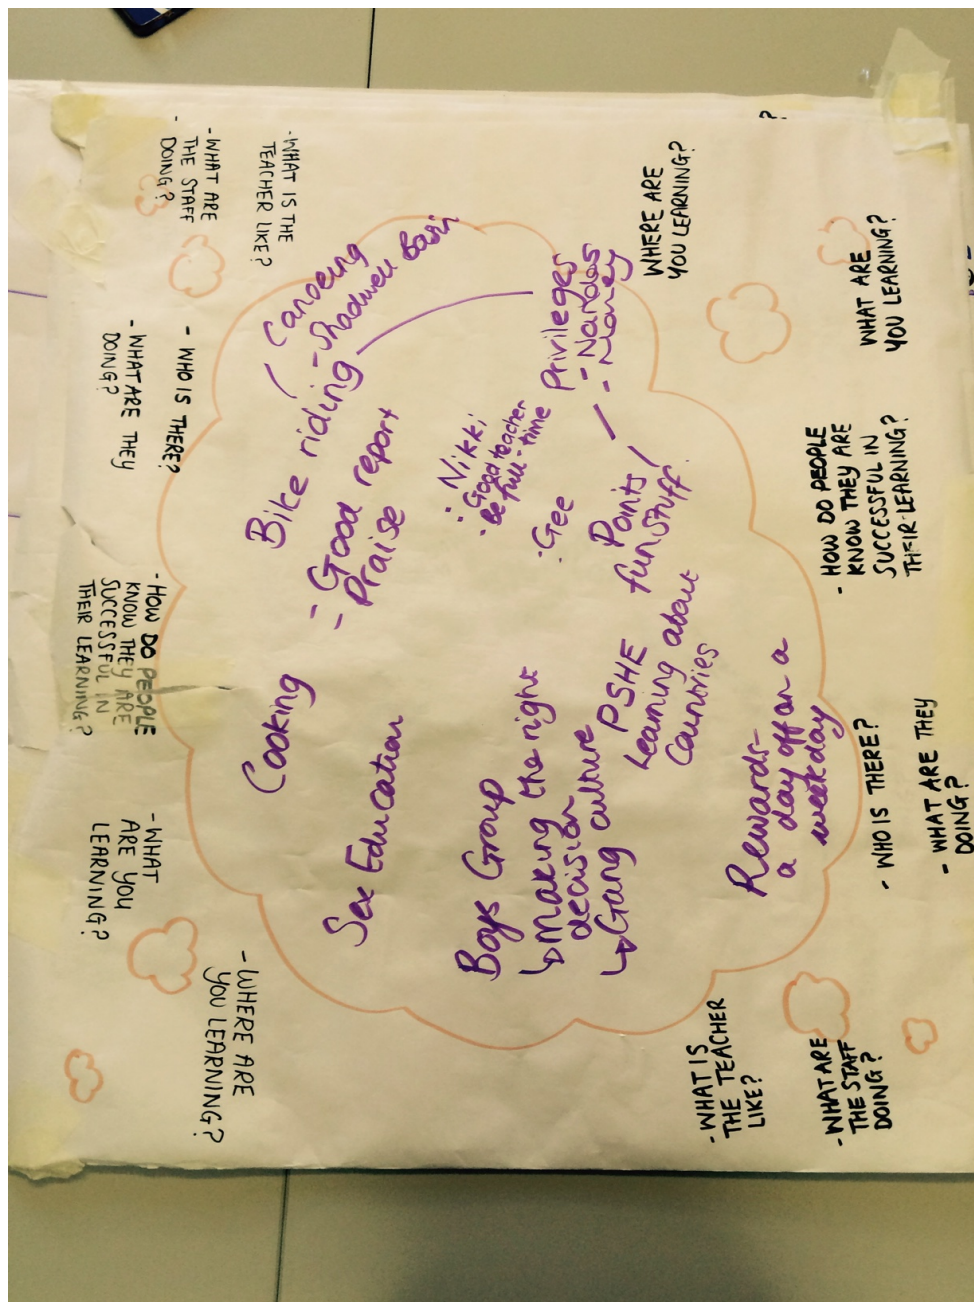 - WHAT IS THE
TEACHER LIKE?
- WHAT ARE
THE STAFF
DOING?
- WHO IS THERE?
- WHAT ARE THEY
DOING?
- HOW DO PEOPLE
KNOW THEY ARE
SUCCESSFUL IN
THEIR LEARNING?
- WHAT
ARE YOU
LEARNING?
- WHERE ARE
YOU LEARNING?
Canoeing
- Shadwell Basin
Bike riding
- Good report
- Praise
Privileges
- Nandos
- Money
Nikki
• Good teacher
• Be full-time
• Gee
Points /
fun stuff
Cooking
Sex Education
PSHE
Learning about
Countries
Boys Group
↳ Making the right
decision
↳ Gang culture
Rewards -
a day off on a
weekday
WHERE ARE
YOU LEARNING?
?
WHAT ARE
YOU LEARNING?
- HOW DO PEOPLE
KNOW THEY ARE
SUCCESSFUL IN
THEIR LEARNING?
- WHO IS THERE?
- WHAT ARE THEY
DOING?
- WHAT IS
THE TEACHER
LIKE?
- WHAT ARE
THE STAFF
DOING?